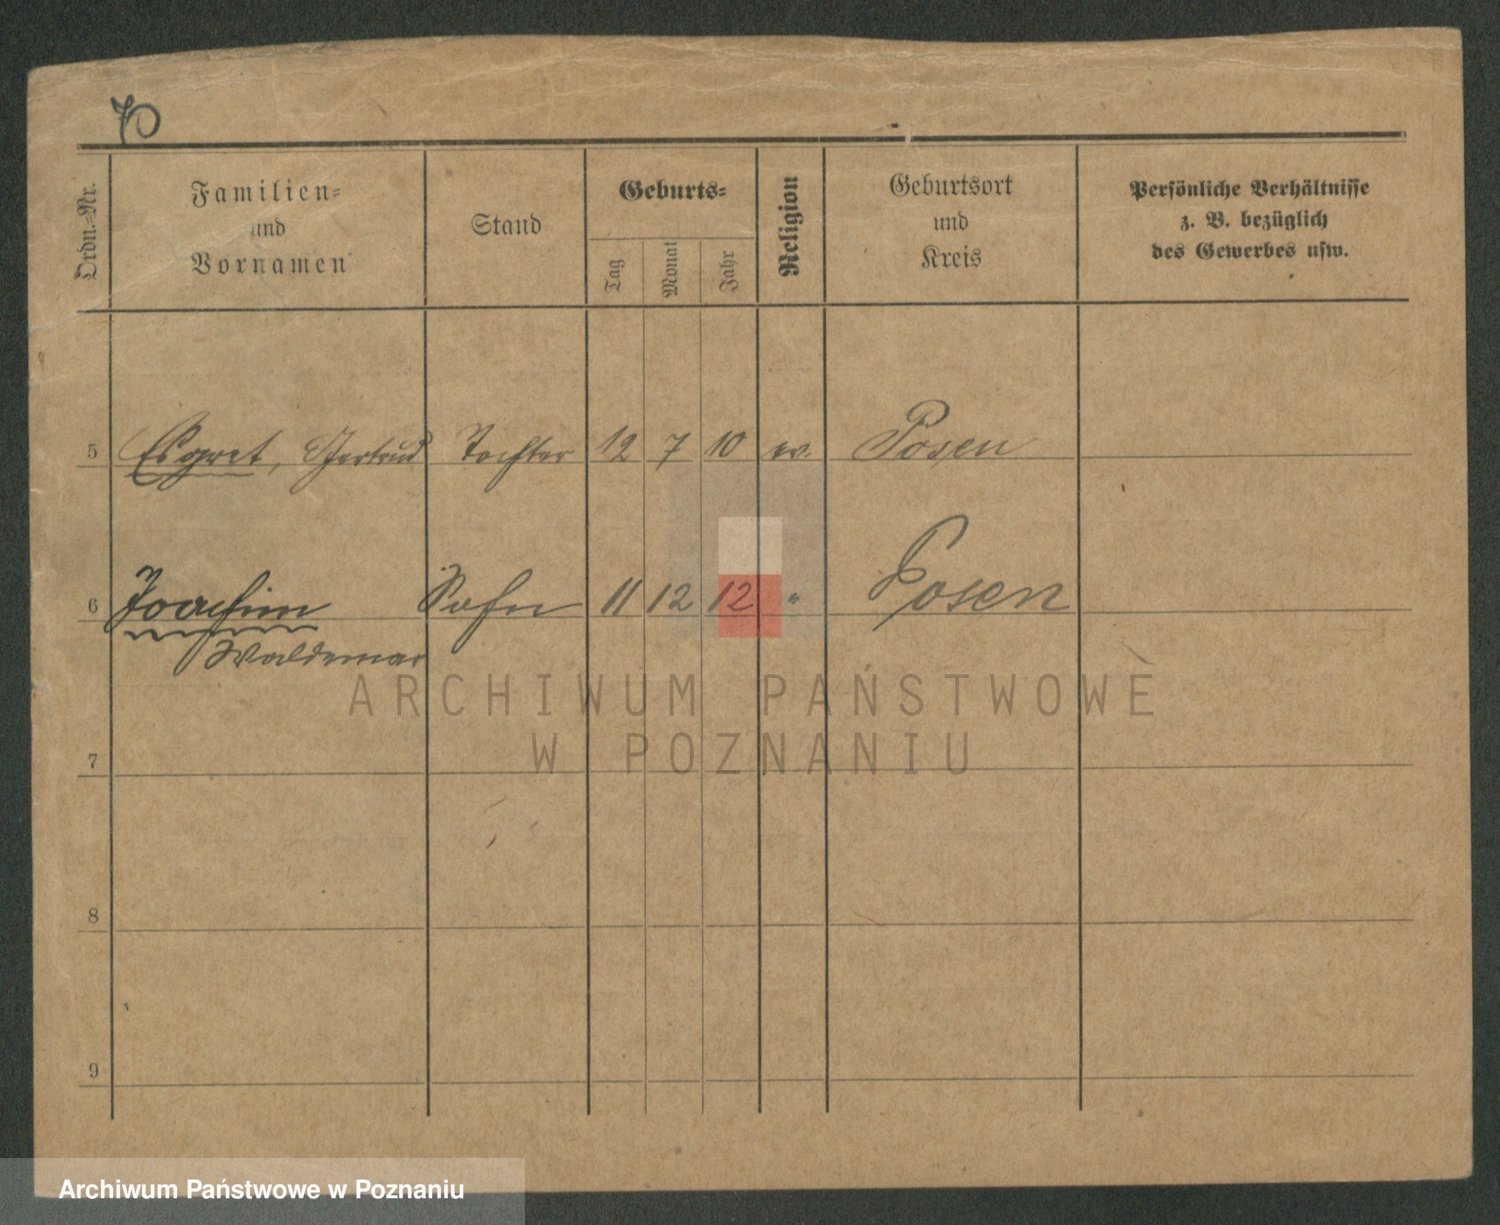 Ordn.-Nr.
Familien-
und
Vornamen
Stand
Geburts-
Tag
Monat
Jahr
Religion
Geburtsort
und
Kreis
Persönliche Verhältnisse
z. B. bezüglich
des Gewerbes usw.
5 Gertrud Tochter 12 7 10 ev. Posen
6 Joachim Sohn 11 12 12 " Posen
Waldemar
ARCHIWUM PAŃSTWOWE
W POZNANIU
7
8
9
Archiwum Państwowe w Poznaniu